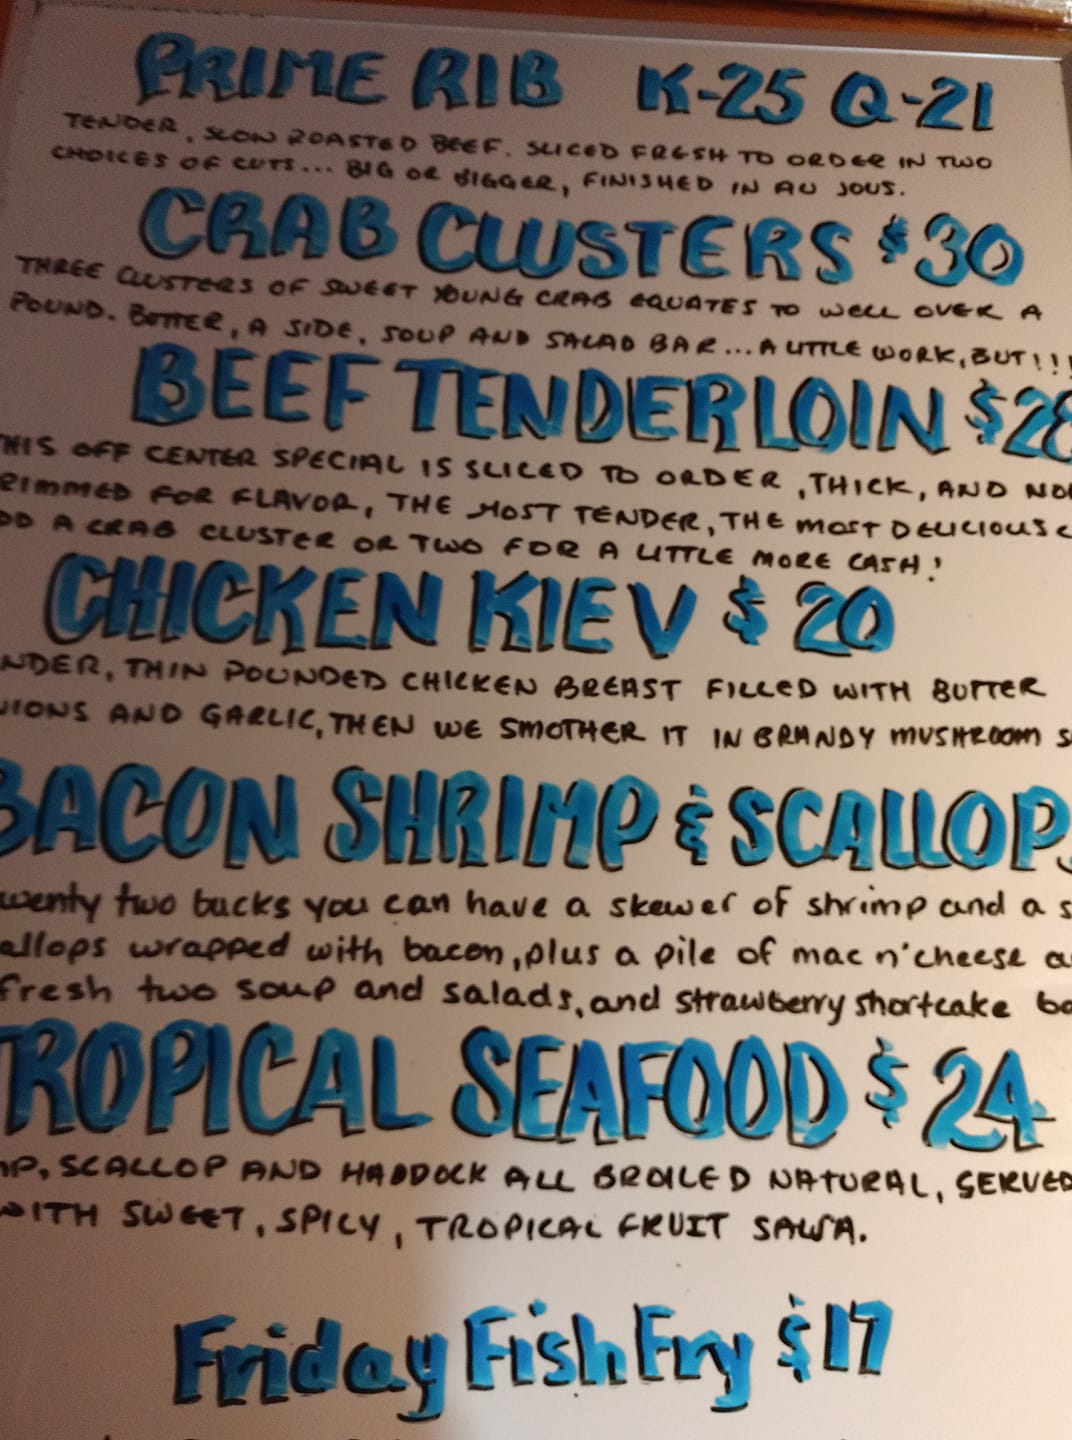 PRIME RIB K-25 Q-21
TENDER, SLOW ROASTED BEEF. SLICED FRESH TO ORDER IN TWO
CHOICES OF CUTS... BIG OR BIGGER, FINISHED IN AU JOUS.
CRAB CLUSTERS $30
THREE CLUSTERS OF SWEET YOUNG CRAB EQUATES TO WELL OVER A
POUND. BUTTER, A SIDE, SOUP AND SALAD BAR... A LITTLE WORK, BUT!!!
BEEF TENDERLOIN $28
THIS OFF CENTER SPECIAL IS SLICED TO ORDER, THICK, AND NO
RIMMED FOR FLAVOR, THE MOST TENDER, THE MOST DELICIOUS C
DD A CRAB CLUSTER OR TWO FOR A LITTLE MORE CASH!
CHICKEN KIEV $20
NDER, THIN POUNDED CHICKEN BREAST FILLED WITH BUTTER
NIONS AND GARLIC, THEN WE SMOTHER IT IN BRANDY MUSHROOM S
BACON SHRIMP & SCALLOP
wenty two bucks you can have a skewer of shrimp and a s
allops wrapped with bacon, plus a pile of mac n'cheese a
fresh two soup and salads, and strawberry shortcake ba
TROPICAL SEAFOOD $24
MP, SCALLOP AND HADDOCK ALL BROILED NATURAL, SERVED
WITH SWEET, SPICY, TROPICAL FRUIT SALSA.
Friday Fish Fry $17